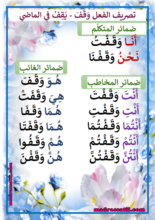 تصريف الفعل وَقَفَ - يَقِفُ في الماضي
ضمائر المتكلم
أَنَا وَقَفْتُ
نَحْنُ وَقَفْنَا
ضمائر المخاطب
أَنْتَ وَقَفْتَ
أَنْتِ وَقَفْتِ
أَنْتُمَا وَقَفْتُمَا
أَنْتُمْ وَقَفْتُمْ
أَنْتُنَّ وَقَفْتُنَّ
ضمائر الغائب
هُوَ وَقَفَ
هِيَ وَقَفَتْ
هُمَا وَقَفَا
هُمَا وَقَفَتَا
هُمْ وَقَفُوا
هُنَّ وَقَفْنَ